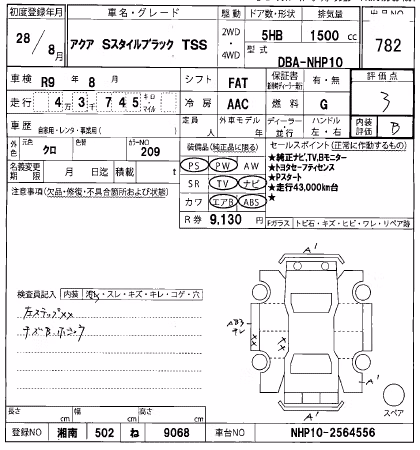 初度登録年月 車名・グレード 駆動 ドア数・形状 排気量 出品NO
28/8月 アクア Sスタイルブラック TSS 2WD・4WD 5HB 1500 cc 782
型式 DBA-NHP10
車検 R9 年 8 月 シフト FAT 保証書 有・無 評価点
走行 4万3千745 キロ・マイル 冷房 AAC 燃料 G 3
車歴 自家用・レンタ・事業用( ) 定員 人 外車モデル 年 ディーラー・並行 ハンドル 左・右 内装評価 B
外色 元色 クロ 色替 カラーNO 209
名義変更期限 月 日迄 積載 t
注意事項(欠品・修復・不具合箇所および状態)
装備品(純正品に限る)
PS PW AW
SR TV ナビ
カワ エアB ABS
R券 9,130 円
セールスポイント(正常に作動するもの)
★純正ナビ,TV,Bモニター
★トヨタセーフティセンス
★Pスタート
★走行43,000km台
★
Fガラス トビ石・キズ・ヒビ・ワレ・リペア跡
検査員記入 内装 汚レ・スレ・キズ・キレ・コゲ・穴
左ステップXX
A'
XX
XX
A'
A'
スペア
長さ cm 幅 cm 高さ cm
登録NO 湘南 502 ね 9068 車台NO NHP10-2564556